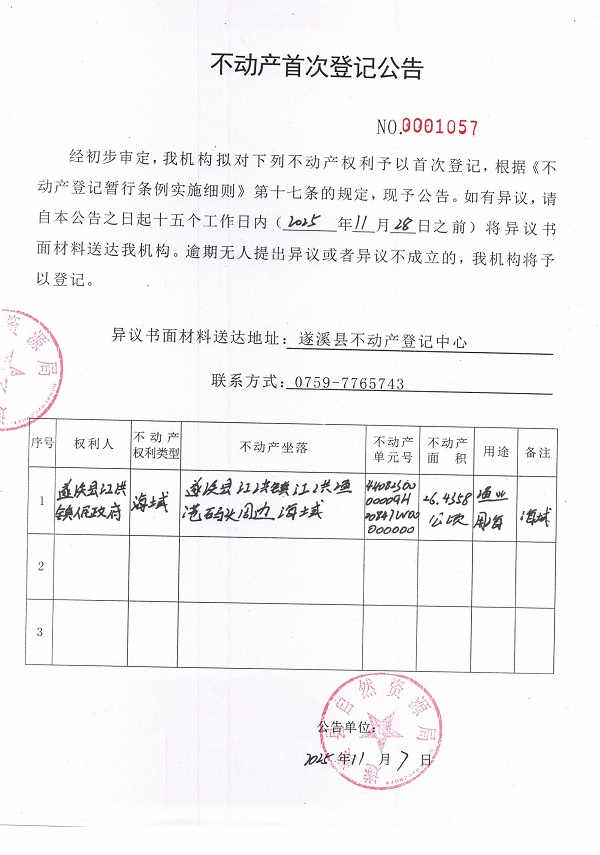 不动产首次登记公告
NO.0001057
经初步审定，我机构拟对下列不动产权利予以首次登记，根据《不
动产登记暂行条例实施细则》第十七条的规定，现予公告。如有异议，请
自本公告之日起十五个工作日内（2025 年11 月28日之前）将异议书
面材料送达我机构。逾期无人提出异议或者异议不成立的，我机构将予
以登记。
异议书面材料送达地址：遂溪县不动产登记中心
联系方式：0759-7765743
序号 权利人 不动产权利类型 不动产坐落 不动产单元号 不动产面积 用途 备注
1 遂溪县江洪镇人民政府 海域 遂溪县江洪镇江洪渔港码头周边海域 公顷 渔业用海 海域
2
3
遂溪县自然资源局
公告单位：
2025年11月7日